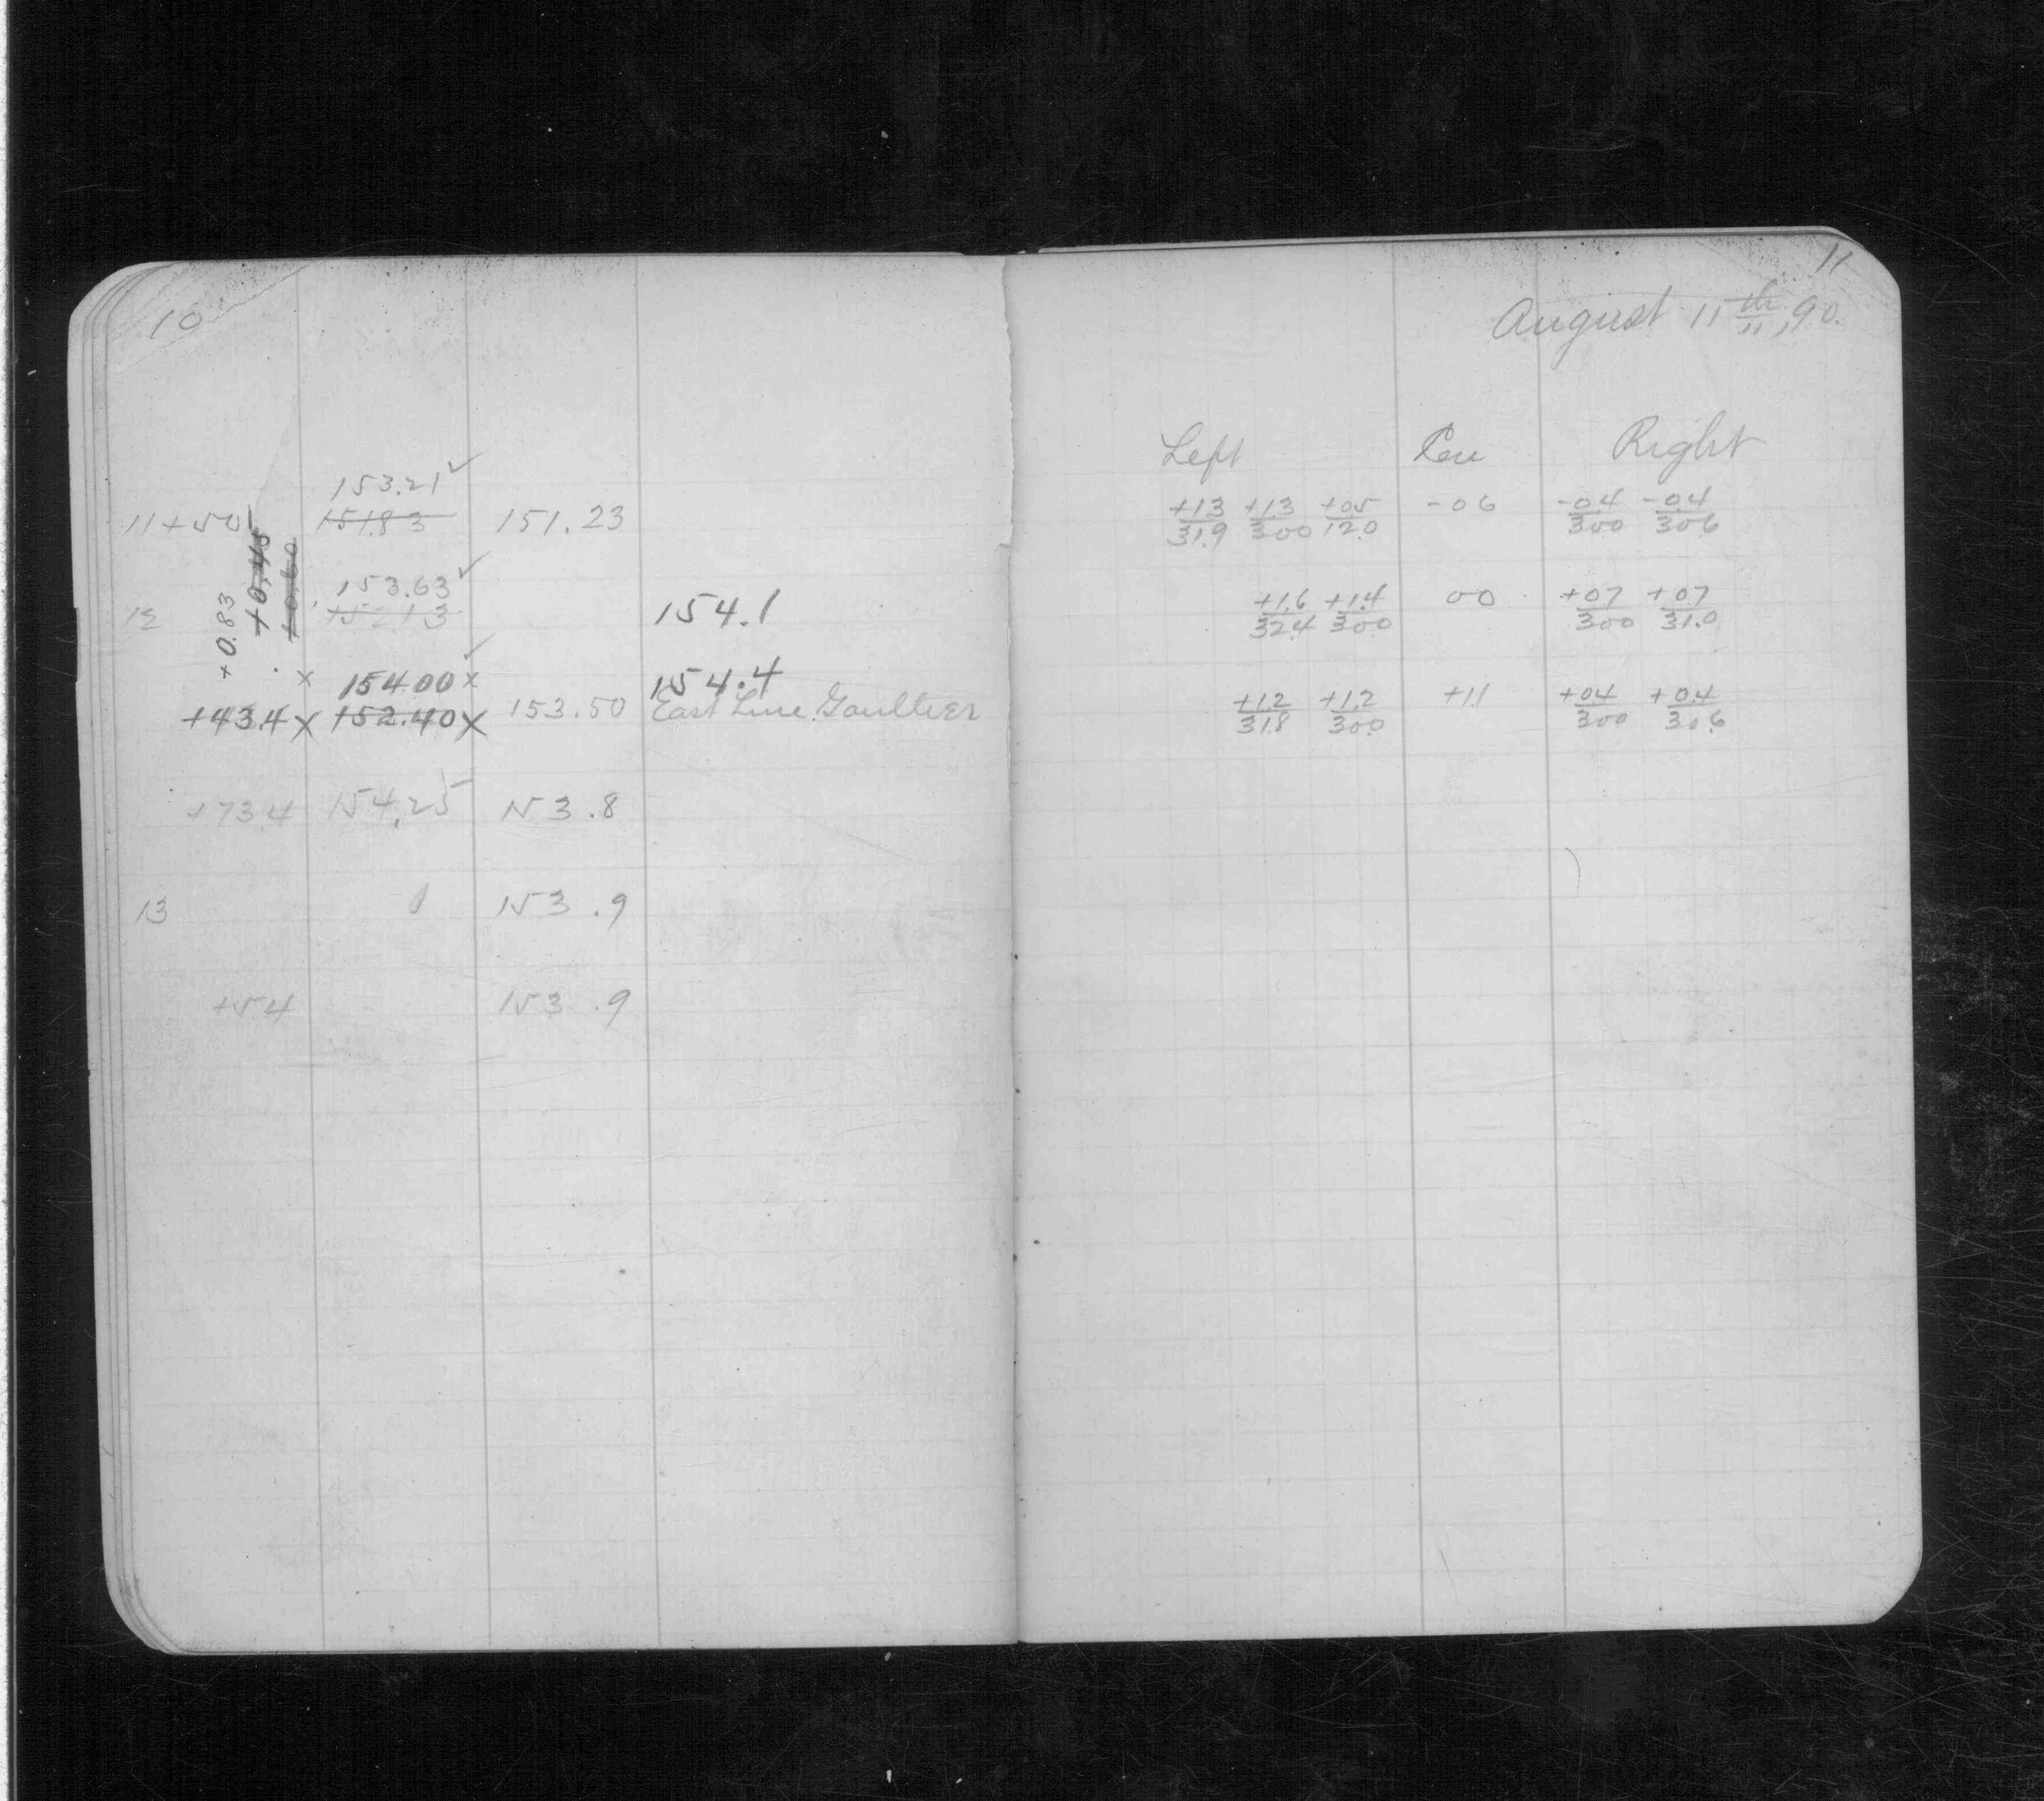 10
153.21 ✓
11+50 151.83 151.23
+0.83
+0.45
+0.60
153.63 ✓
12 152.13 154.1
x 154.00 x ✓ 154.4
+43.4 x 152.40 x 153.50 East Line Gaultier
+73.4 154.25 153.8
13 153.9
+54 153.9
11
August 11th, 90.
Left Cen Right
+1.3 +1.3 +0.5 -0.6 -0.4 -0.4
31.9 30.0 12.0 30.0 30.6
+1.6 +1.4 0.0 +0.7 +0.7
32.4 30.0 30.0 31.0
+1.2 +1.2 +1.1 +0.4 +0.4
31.8 30.0 30.0 30.6